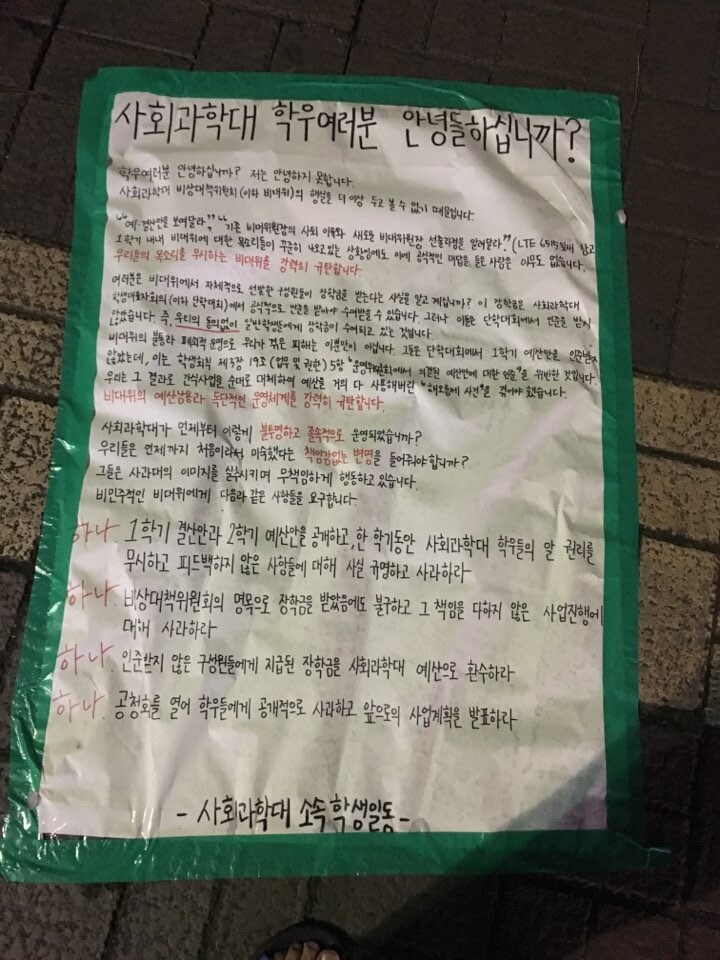 사회과학대 학우여러분 안녕들하십니까?
학우여러분 안녕하십니까? 저는 안녕하지 못합니다.
사회과학대 비상대책위원회(이하 비대위)의 행실을 더 이상 두고 볼 수 없기 때문입니다.
"예·결산안을 보여달라", "기존 비대위원장의 사퇴 이유와 새로운 비대위원장 선출과정을 알려달라" (LTE 참고)
1학기 내내 비대위에 대한 목소리들이 꾸준히 나오고있는 상황임에도 이에 공식적인 대답을 들은 사람은 아무도 없습니다.
우리들의 목소리를 무시하는 비대위를 강력히 규탄합니다.
여러분은 비대위에서 자체적으로 선발한 구성원들이 장학금을 받는다는 사실을 알고 계십니까? 이 장학금은 사회과학대
학생대표자회의(이하 단학대회)에서 공식적으로 인준을 받아야 수여받을 수 있습니다. 그러나 이들은 단학대회에서 인준을 받지
않았습니다. 즉, 우리의 동의없이 일반학생들에게 장학금이 수여되고 있는 것입니다.
비대위의 불통과 폐쇄적 운영으로 우리가 겪은 피해는 이뿐만이 아닙니다. 그들은 단학대회에서 1학기 예산안을 인준받지
않았는데, 이는 학생회칙 제3장 19조 (업무 및 권한) 5항 "운영위원회에서 의결된 예산안에 대한 인준"을 위반한 것입니다.
우리는 그 결과로 간식사업을 순대로 대체하여 예산을 거의 다 사용해버린 "해오름제 사건"을 겪어야 했습니다.
비대위의 예산남용과 독단적인 운영체계를 강력히 규탄합니다.
사회과학대가 언제부터 이렇게 불투명하고 졸속적으로 운영되었습니까?
우리들은 언제까지 처음이라서 미숙했다는 책임감없는 변명을 들어줘야합니까?
그들은 사과대의 이미지를 실추시키며 무책임하게 행동하고 있습니다.
비민주적인 비대위에게 다음과 같은 사항들을 요구합니다.
하나. 1학기 결산안과 2학기 예산안을 공개하고, 한 학기동안 사회과학대 학우들의 알 권리를
무시하고 피드백하지 않은 사항들에 대해 사실 규명하고 사과하라
하나. 비상대책위원회의 명목으로 장학금을 받았음에도 불구하고 그 책임을 다하지 않은 사업진행에
대해 사과하라
하나. 인준받지 않은 구성원들에게 지급된 장학금을 사회과학대 예산으로 환수하라
하나. 공청회를 열어 학우들에게 공개적으로 사과하고 앞으로의 사업계획을 발표하라
- 사회과학대 소속 학생일동 -